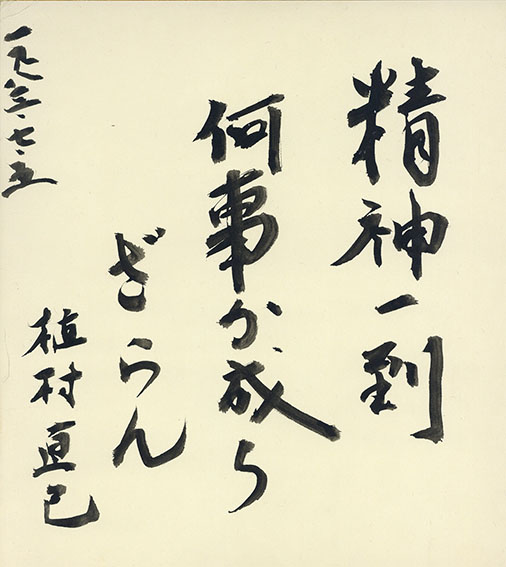 精神一到
何事か成ら
ざらん
植村直己
一九八三・七・五